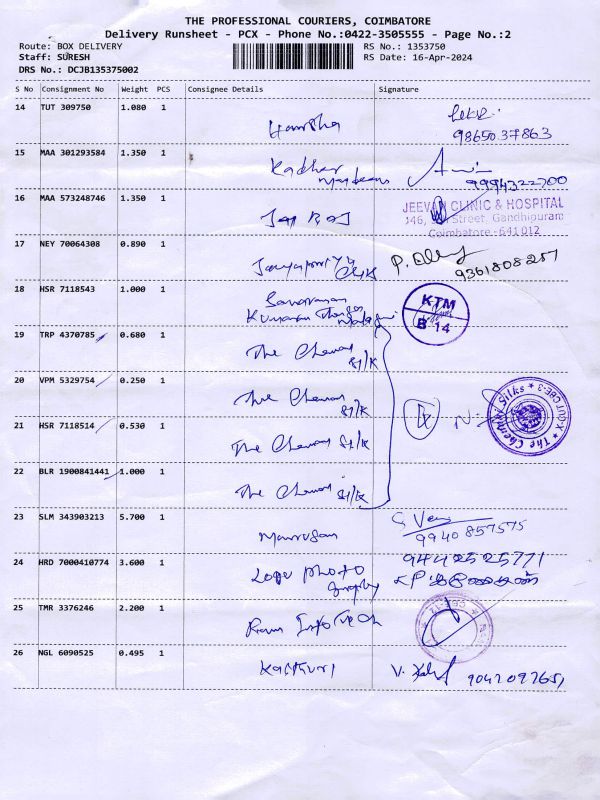 THE PROFESSIONAL COURIERS, COIMBATORE
Delivery Runsheet - PCX - Phone No.:0422-3505555 - Page No.:2
Route: BOX DELIVERY RS No.: 1353750
Staff: SURESH RS Date: 16-Apr-2024
DRS No.: DCJB135375002
S No Consignment No Weight PCS Consignee Details Signature
14 TUT 309750 1.080 1
Harsha 98650 37863
15 MAA 301293584 1.350 1
Kadhar 9994322700
16 MAA 573248746 1.350 1
Jay Raj
JEEVAN CLINIC & HOSPITAL
346, Street, Gandhipuram
Coimbatore - 641 012
17 NEY 70064308 0.890 1
9361808257
18 HSR 7118543 1.000 1
Kumaran Thanga
KTM
B 14
19 TRP 4370785 0.680 1
The Chennai Silk
20 VPM 5329754 0.250 1
The Chennai Silk
21 HSR 7118514 0.530 1
The Chennai Silk
The Chennai Silks
22 BLR 1900841441 1.000 1
The Chennai Silk
23 SLM 343903213 5.700 1
Murugan 99408 57575
24 HRD 7000410774 3.600 1
9442525771
Logu Photo
graphy
25 TMR 3376246 2.200 1
Ram Info Tech
26 NGL 6090525 0.495 1
Kasthuri